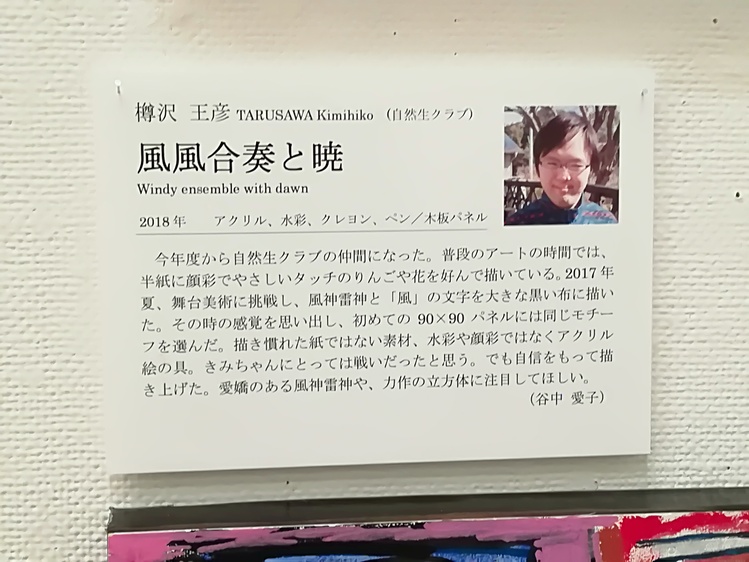 樽沢 王彦 TARUSAWA Kimihiko （自然生クラブ）
風風合奏と暁
Windy ensemble with dawn
2018年 アクリル、水彩、クレヨン、ペン／木板パネル
今年度から自然生クラブの仲間になった。普段のアートの時間では、
半紙に顔彩でやさしいタッチのりんごや花を好んで描いている。2017年
夏、舞台美術に挑戦し、風神雷神と「風」の文字を大きな黒い布に描い
た。その時の感覚を思い出し、初めての 90×90 パネルには同じモチー
フを選んだ。描き慣れた紙ではない素材、水彩や顔彩ではなくアクリル
絵の具。きみちゃんにとっては戦いだったと思う。でも自信をもって描
き上げた。愛嬌のある風神雷神や、力作の立方体に注目してほしい。
（谷中 愛子）